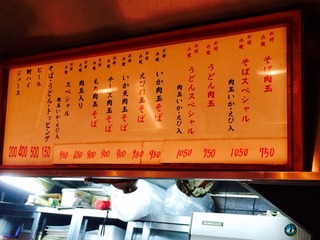 お好み焼 そば肉玉 750
お好み焼 そばスペシャル 肉玉いか・えび入 1050
お好み焼 うどん肉玉 750
お好み焼 うどんスペシャル 肉玉いか・えび入 1050
お好み焼 いか肉玉そば 930
お好み焼 えび肉玉そば 930
お好み焼 いか天肉玉そば 900
お好み焼 チーズ肉玉そば 900
お好み焼 もち肉玉そば 900
肉玉入り
スペシャル 肉玉いか・えび入
そば・うどん・トッピング 150
ビール 500
酎ハイ 400
ジュース 200